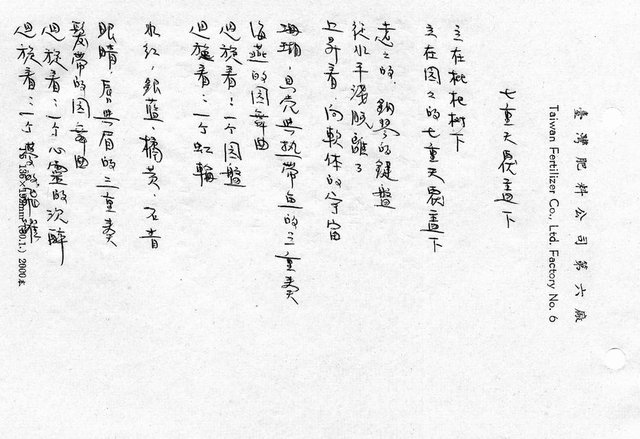 臺灣肥料公司第六廠
Taiwan Fertilizer Co., Ltd. Factory No. 6
七重天覆蓋下
立在枇杷樹下
立在圓圓的七重天覆蓋下
鋼琴的鍵盤
從水平湯脫離了
上昇着,向軟体的宇宙
珊瑚,貝壳與熱帶魚的三重奏
海燕的圓舞曲
迴旋着:一个圓盤
迴旋着:一个虹輪
水紅,銀藍,橘黃,石青
眼睛,唇與眉的三重奏
髮帶的圓舞曲
迴旋着:一个心靈的沉醉
迴旋着:一个夢的飛躍
136×195mm (60.1.) 2000本